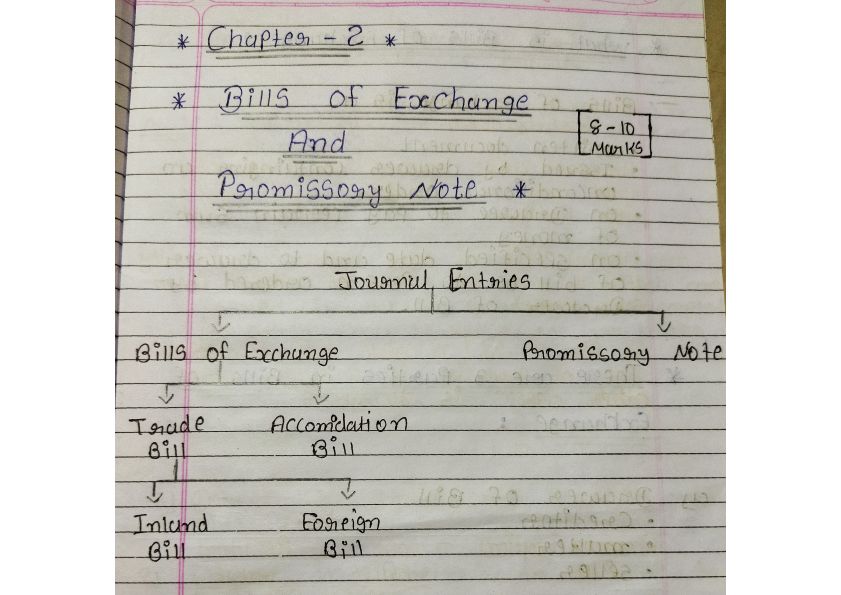 * Chapter - 2 *
* Bills Of Exchange
And
8-10
Marks
Promissory Note *
Journal Entries
Bills of Exchange Promissory Note
Trade Accomidation
Bill Bill
Inland Foreign
Bill Bill